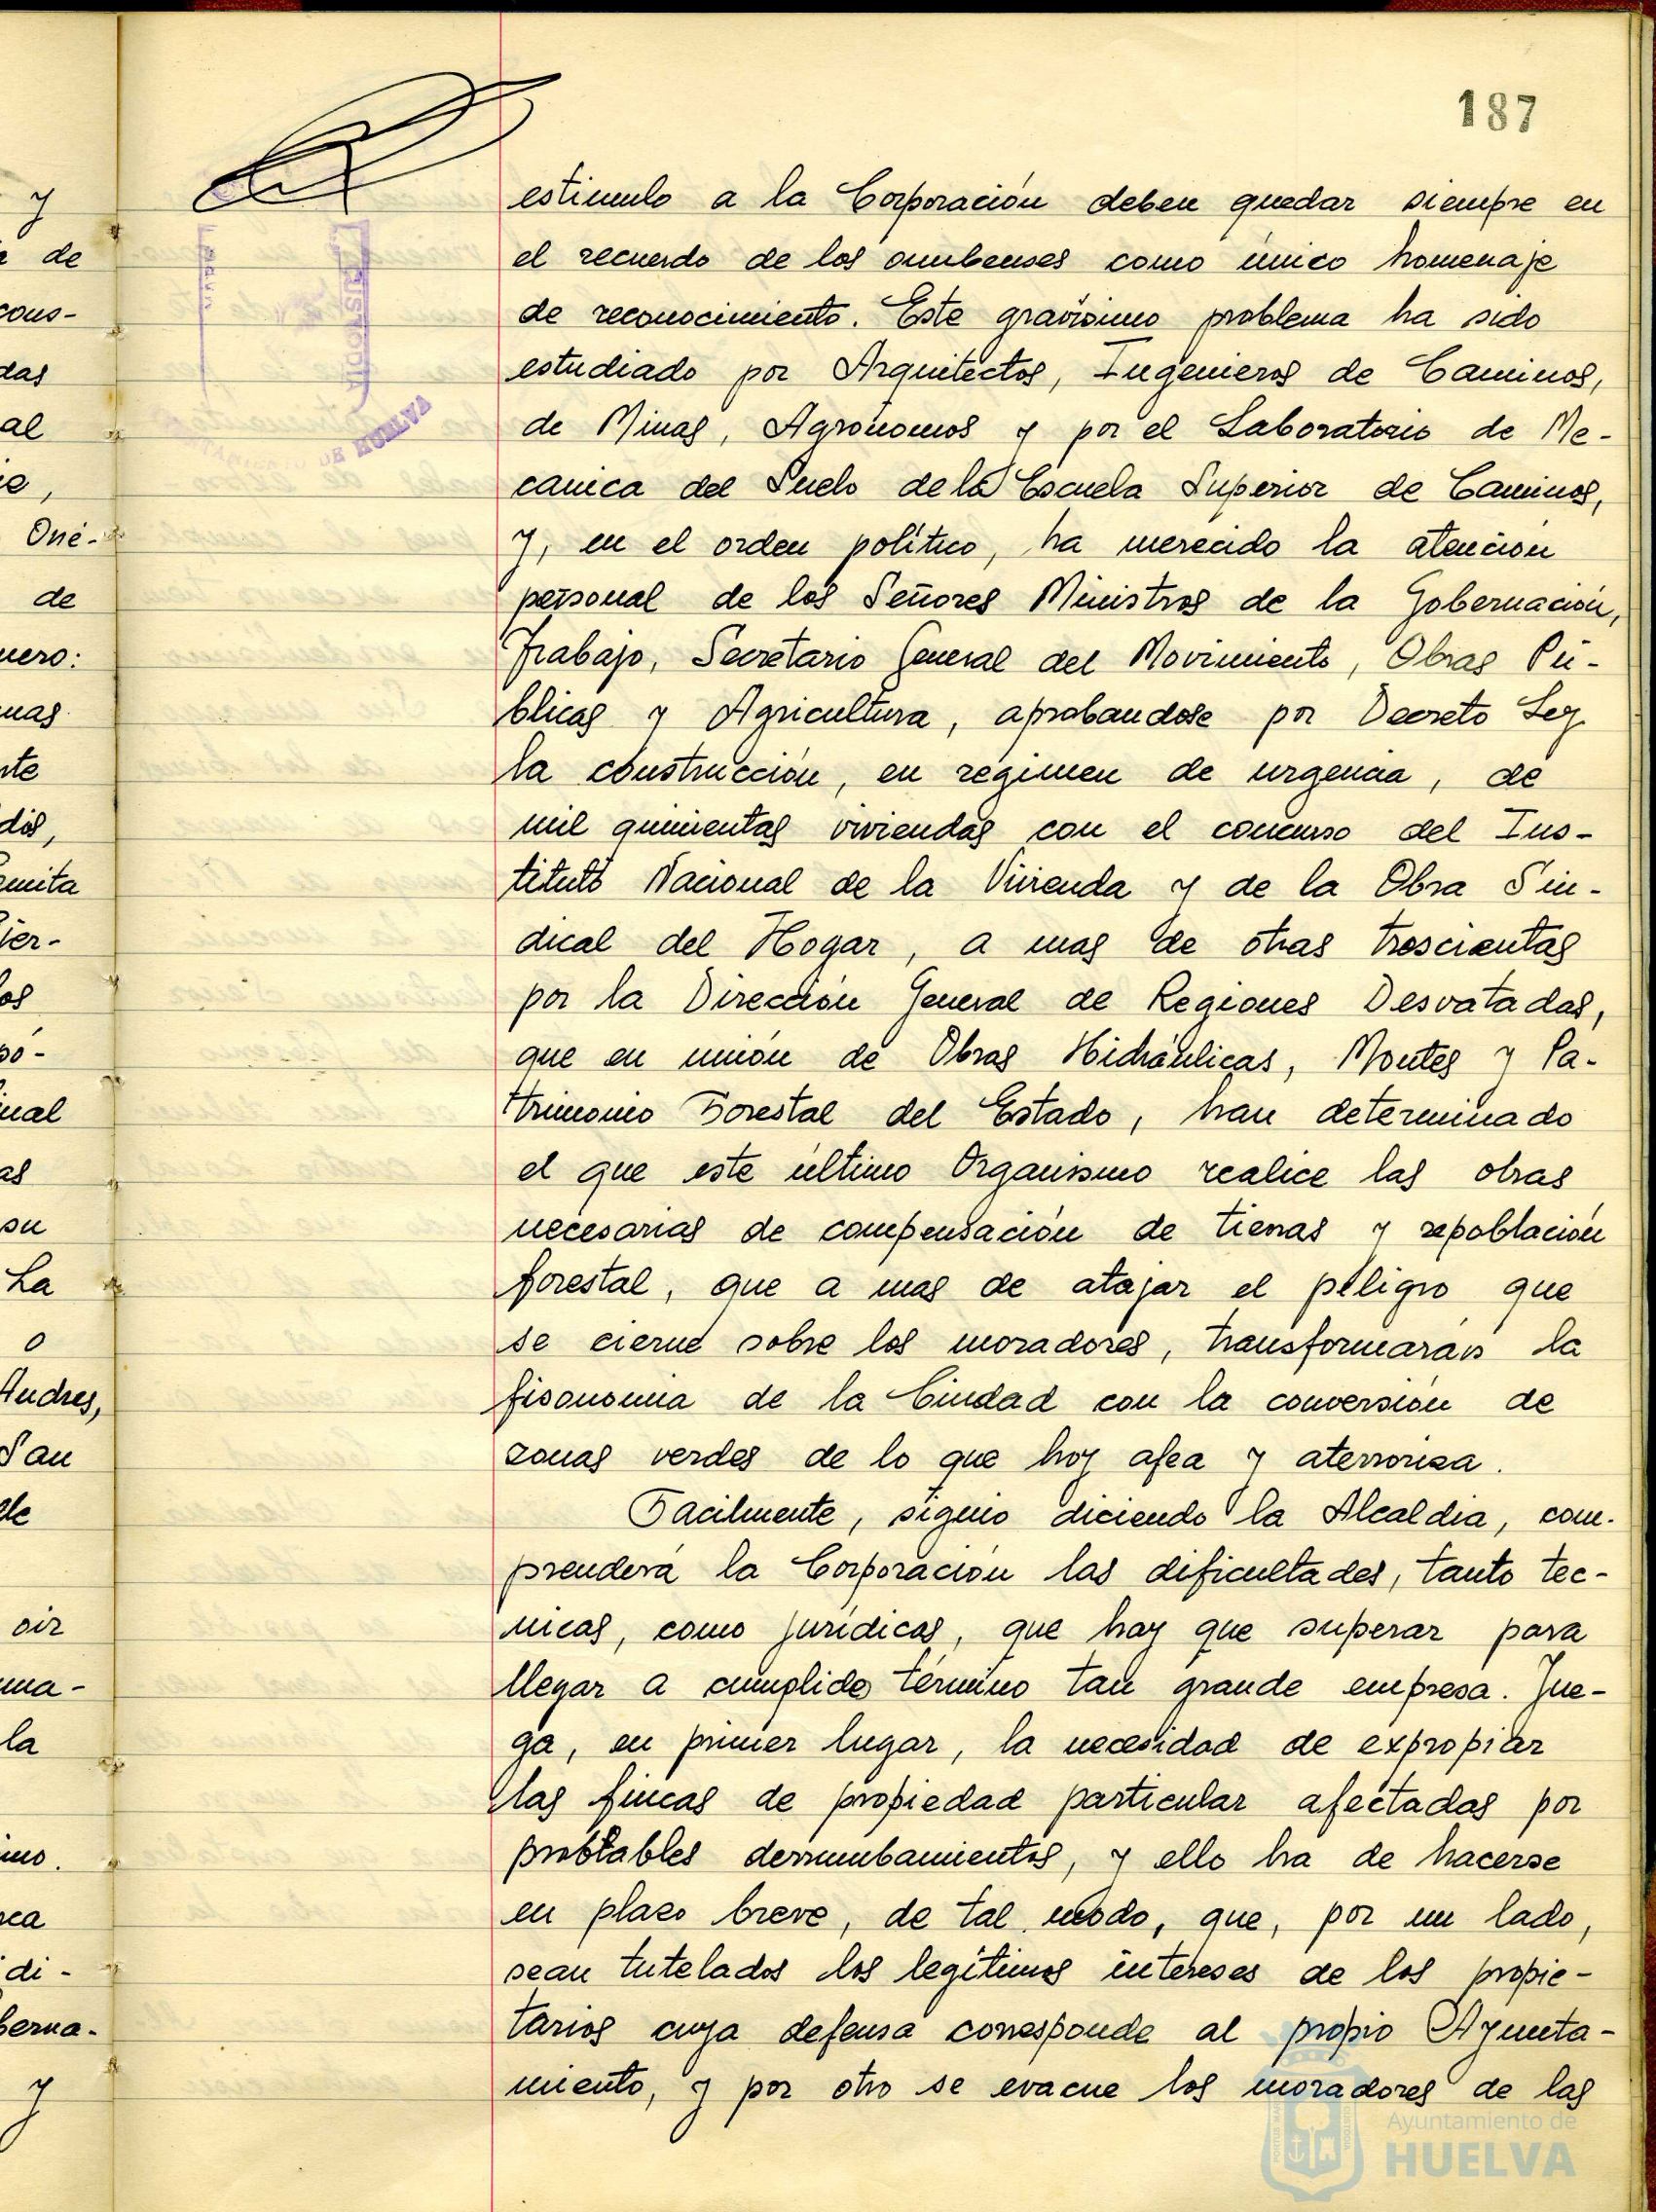 187
estimulo a la Corporación deben quedar siempre en
el recuerdo de los onubenses como único homenaje
de reconocimiento. Este gravísimo problema ha sido
estudiado por Arquitectos, Ingenieros de Caminos,
de Minas, Agrónomos y por el Laboratorio de Me-
canica del Suelo de la Escuela Superior de Caminos,
y, en el orden político, ha merecido la atención
personal de los Señores Ministros de la Gobernación,
Trabajo, Secretario General del Movimiento, Obras Pú-
blicas y Agricultura, aprobandose por Decreto Ley
la construcción, en regimen de urgencia, de
mil quinientas viviendas con el concurso del Ins-
tituto Nacional de la Vivienda y de la Obra Sin-
dical del Hogar, a mas de otras trescientas
por la Dirección General de Regiones Desvatadas,
que en unión de Obras Hidráulicas, Montes y Pa-
trimonio Forestal del Estado, han determinado
el que este último Organismo realice las obras
necesarias de compensación de tierras y repoblación
forestal, que a mas de atajar el peligro que
se cierne sobre los moradores, transformarán la
fisonomia de la Ciudad con la conversión de
zonas verdes de lo que hoy afea y aterroriza.
Facilmente, siguio diciendo la Alcaldia, com-
prenderá la Corporación las dificultades, tanto tec-
nicas, como jurídicas, que hay que superar para
llegar a cumplido término tan grande empresa. Jue-
ga, en primer lugar, la necesidad de expropiar
las fincas de propiedad particular afectadas por
probables derrumbamientos, y ello ha de hacerse
en plazo breve, de tal modo, que, por un lado,
sean tutelados los legítimos intereses de los propie-
tarios cuya defensa corresponde al propio Ayunta-
miento, y por otro se evacue los moradores de las
y
de
cons-
das
al
de
mas
su
La
o
Andres,
San
oir
la
di-
y
CUSTODIA
DE HUELVA
Ayuntamiento de
HUELVA